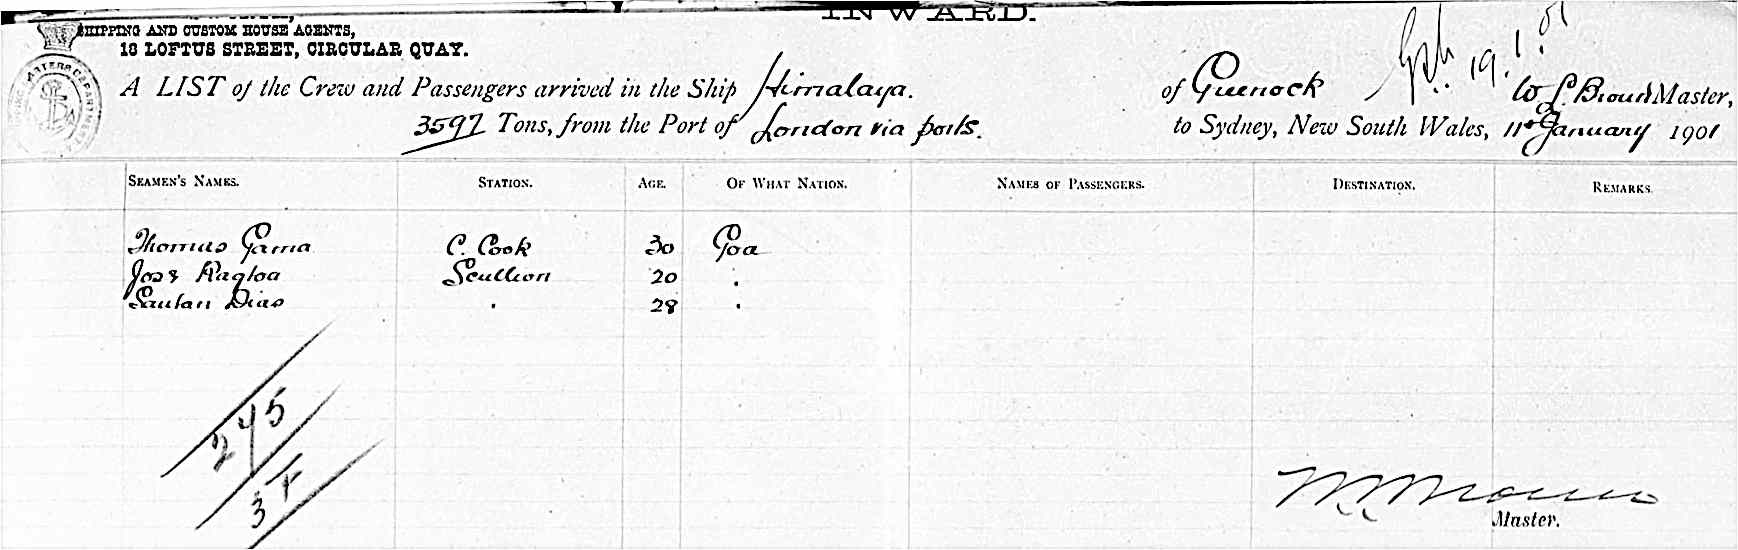 INWARD.
SHIPPING AND CUSTOM HOUSE AGENTS,
18 LOFTUS STREET, CIRCULAR QUAY.
A LIST of the Crew and Passengers arrived in the Ship Himalaya. of Greenock W. L. Broun Master,
3597 Tons, from the Port of London via ports. to Sydney, New South Wales, 11th January 1901
19.1.01
SEAMEN'S NAMES. STATION. AGE. OF WHAT NATION. NAMES OF PASSENGERS. DESTINATION. REMARKS.
Thomas Gama C. Cook 30 Goa
Jose Scullion 20 "
Dias " 28 "
245
34
Master.